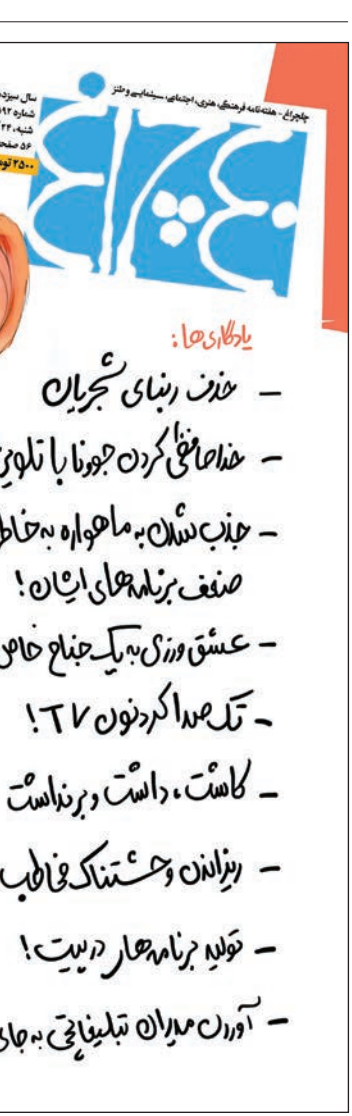 چلچراغ - هفته‌نامه فرهنگی، هنری، اجتماعی، سینمایی و طنز
سال سیزده
شماره ۶۹۲
شنبه، ۲۴
۵۶ صفحه
۲۵۰۰ توم
چلچراغ
یادگاری‌ها:
– حذف ربنای شجریان
– خداحافظی کردن جوونا با تلویز
– جذب شدن به ماهواره به خاط
ضعف برنامه‌های ایشان!
– عشق ورزی به یک جناح خاص
– تک صدا کردنون TV!
– کاشت، داشت و برنداشت
– ریزاندن وحشتناک مخاطب
– تولید برنامه‌های دربیت!
– آوردن مدیران تبلیغاتچی به جای